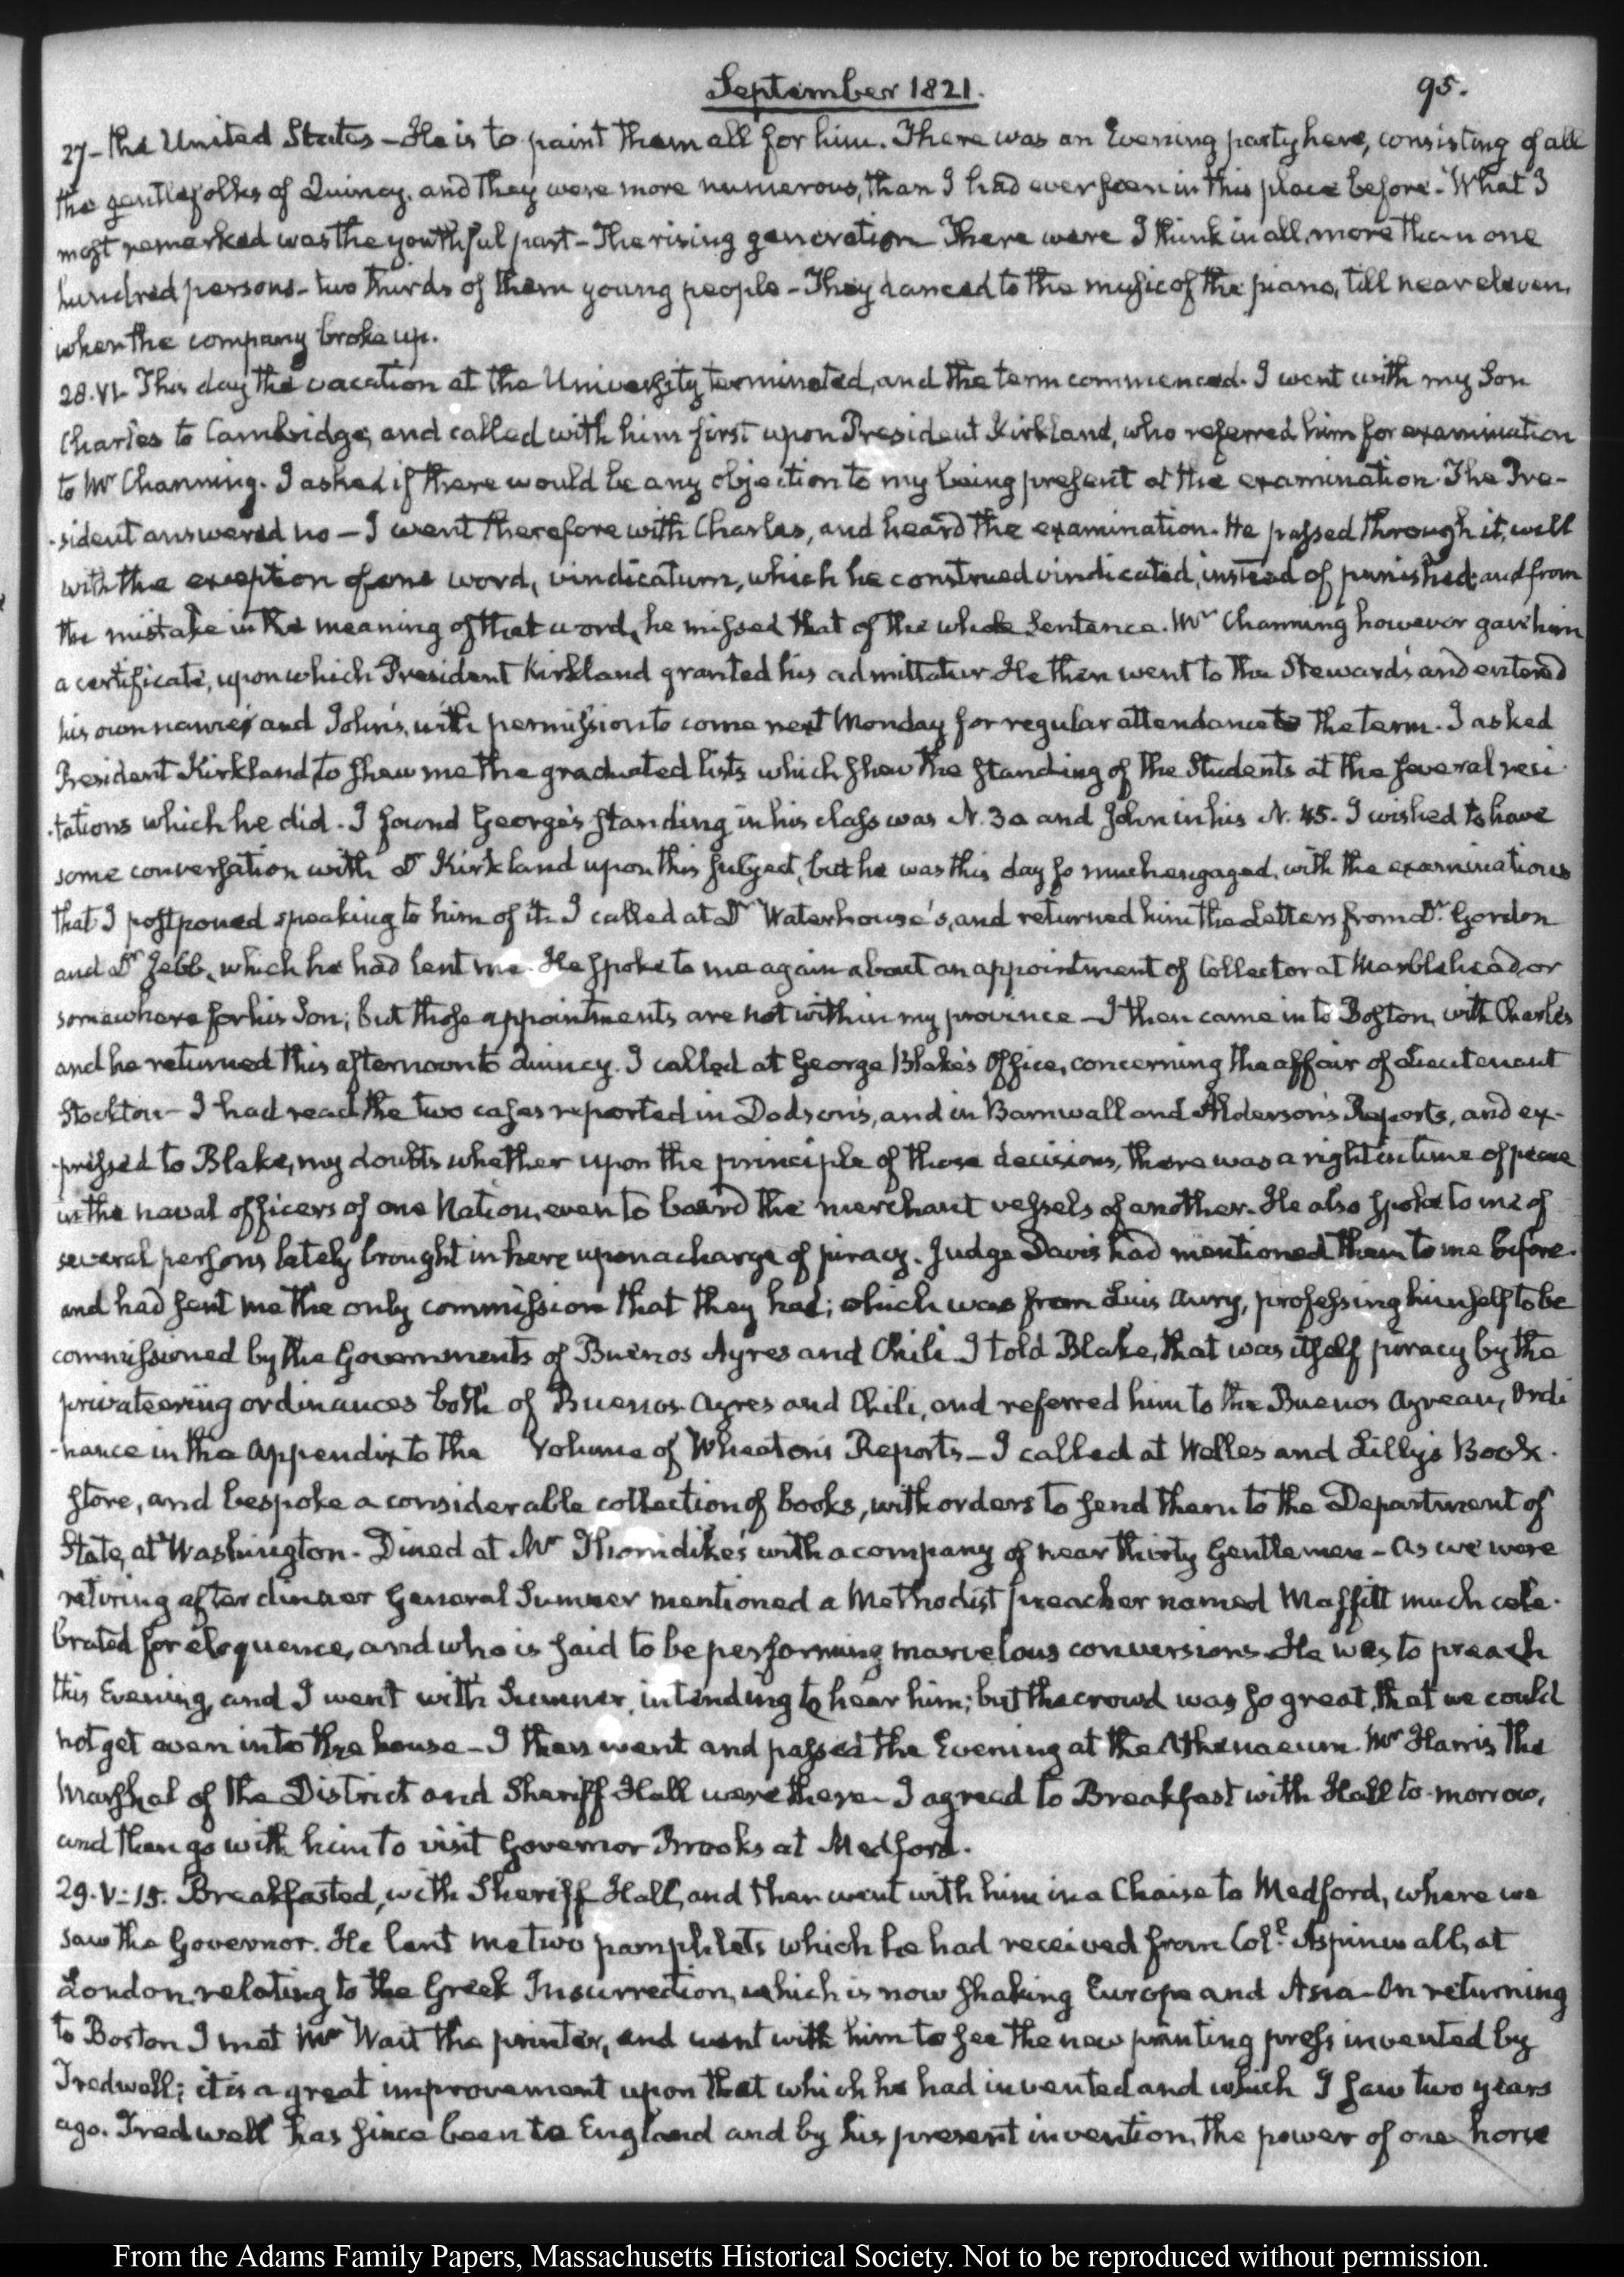 September 1821.
95.
27 - the United States - He is to paint them all for him. There was an Evening party here, consisting of all
the gentlefolks of Quincy, and they were more numerous, than I had ever seen in this place before - What I
most remarked was the youthful part - The rising generation There were I think in all, more than one
hundred persons - two thirds of them young people - They danced to the music of the piano, till near eleven,
when the company broke up.
28. VI. This day the vacation at the University terminated, and the term commenced. I went with my Son
Charles to Cambridge, and called with him first upon President Kirkland, who referred him for examination
to Mr Channing. I asked if there would be any objection to my being present at the examination. The Pre-
-sident answered no - I went therefore with Charles, and heard the examination. He passed through it, well
with the exception of one word, vindicatum, which he construed vindicated, instead of punished; and from
the mistake in the meaning of that word, he missed that of the whole Sentence. Mr Channing however gave him
a certificate, upon which President Kirkland granted his admittatur. He then went to the Steward's and entered
his own name and John's, with permission to come next Monday for regular attendance the term. I asked
President Kirkland, to shew me the graduated lists which shew the standing of the Students at the several reci
-tations which he did. I found George's standing in his class was N. 30 and John in his N. 45. I wished to have
some conversation with Dr Kirkland upon this subject, but he was this day so much engaged, with the examinations
that I postponed speaking to him of it. I called at Dr Waterhouse's, and returned him the Letters from Dr. Gordon
and Dr Jebb, which he had lent me. He spoke to me again about an appointment of Collector at Marblehead, or
somewhere for his Son; but those appointments are not within my province - I then came in to Boston, with Charles
and he returned this afternoon to Quincy. I called at George Blake's Office, concerning the affair of Lieutenant
Stockton - I had read the two cases reported in Dodson's, and in Barnwall and Alderson's Reports, and ex-
-pressed to Blake, my doubts whether upon the principle of those decisions, there was a right in time of peace
in the naval officers of one Nation, even to board the merchant vessels of another. He also spoke to me of
several persons lately brought in here upon a charge of piracy. Judge Davis had mentioned them to me before
and had sent me the only commission that they had; which was from Luis Aury, professing himself to be
commissioned by the Governments of Buenos Ayres and Chili. I told Blake, that was itself piracy by the
privateering ordinances both of Buenos Ayres and Chili, and referred him to the Buenos Ayrean, Ordi
-nance in the Appendix to the Volume of Wheaton's Reports - I called at Welles and Lilly's Book-
store, and bespoke a considerable collection of books, with orders to send them to the Department of
State, at Washington - Dined at Mr Thorndike's with a company of near thirty Gentlemen - As we were
retiring after dinner General Sumner mentioned a Methodist preacher named Maffitt much cele-
brated for eloquence, and who is said to be performing marvelous conversions. He was to preach
this Evening, and I went with Sumner, intending to hear him; but the crowd was so great, that we could
not get even into the house - I then went and passed the Evening at the Athenaeum. Mr Harris the
Marshal of the District and Sheriff Hall were there - I agreed to Breakfast with Hall to-morrow,
and then go with him to visit Governor Brooks at Medford.
29. V:15. Breakfasted, with Sheriff Hall, and then went with him in a Chaise to Medford, where we
saw the Governor. He lent me two pamphlets which he had received from Coll. Aspinwall, at
London, relating to the Greek Insurrection, which is now shaking Europe and Asia - On returning
to Boston I met Mr Wait the printer, and went with him to see the new printing press invented by
Tredwell; it is a great improvement upon that which he had invented and which I saw two years
ago. Tredwell has since been to England and by his present invention, the power of one horse
From the Adams Family Papers, Massachusetts Historical Society. Not to be reproduced without permission.